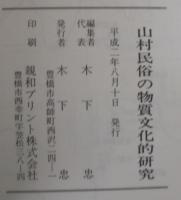 山村民俗の物質文化的研究
平成二年八月十日 発行
編集者代表 木下忠
豊橋市高師町西沢二四-一
発行者 木下忠
印刷 親和プリント株式会社
豊橋市西幸町字笠松二八-四